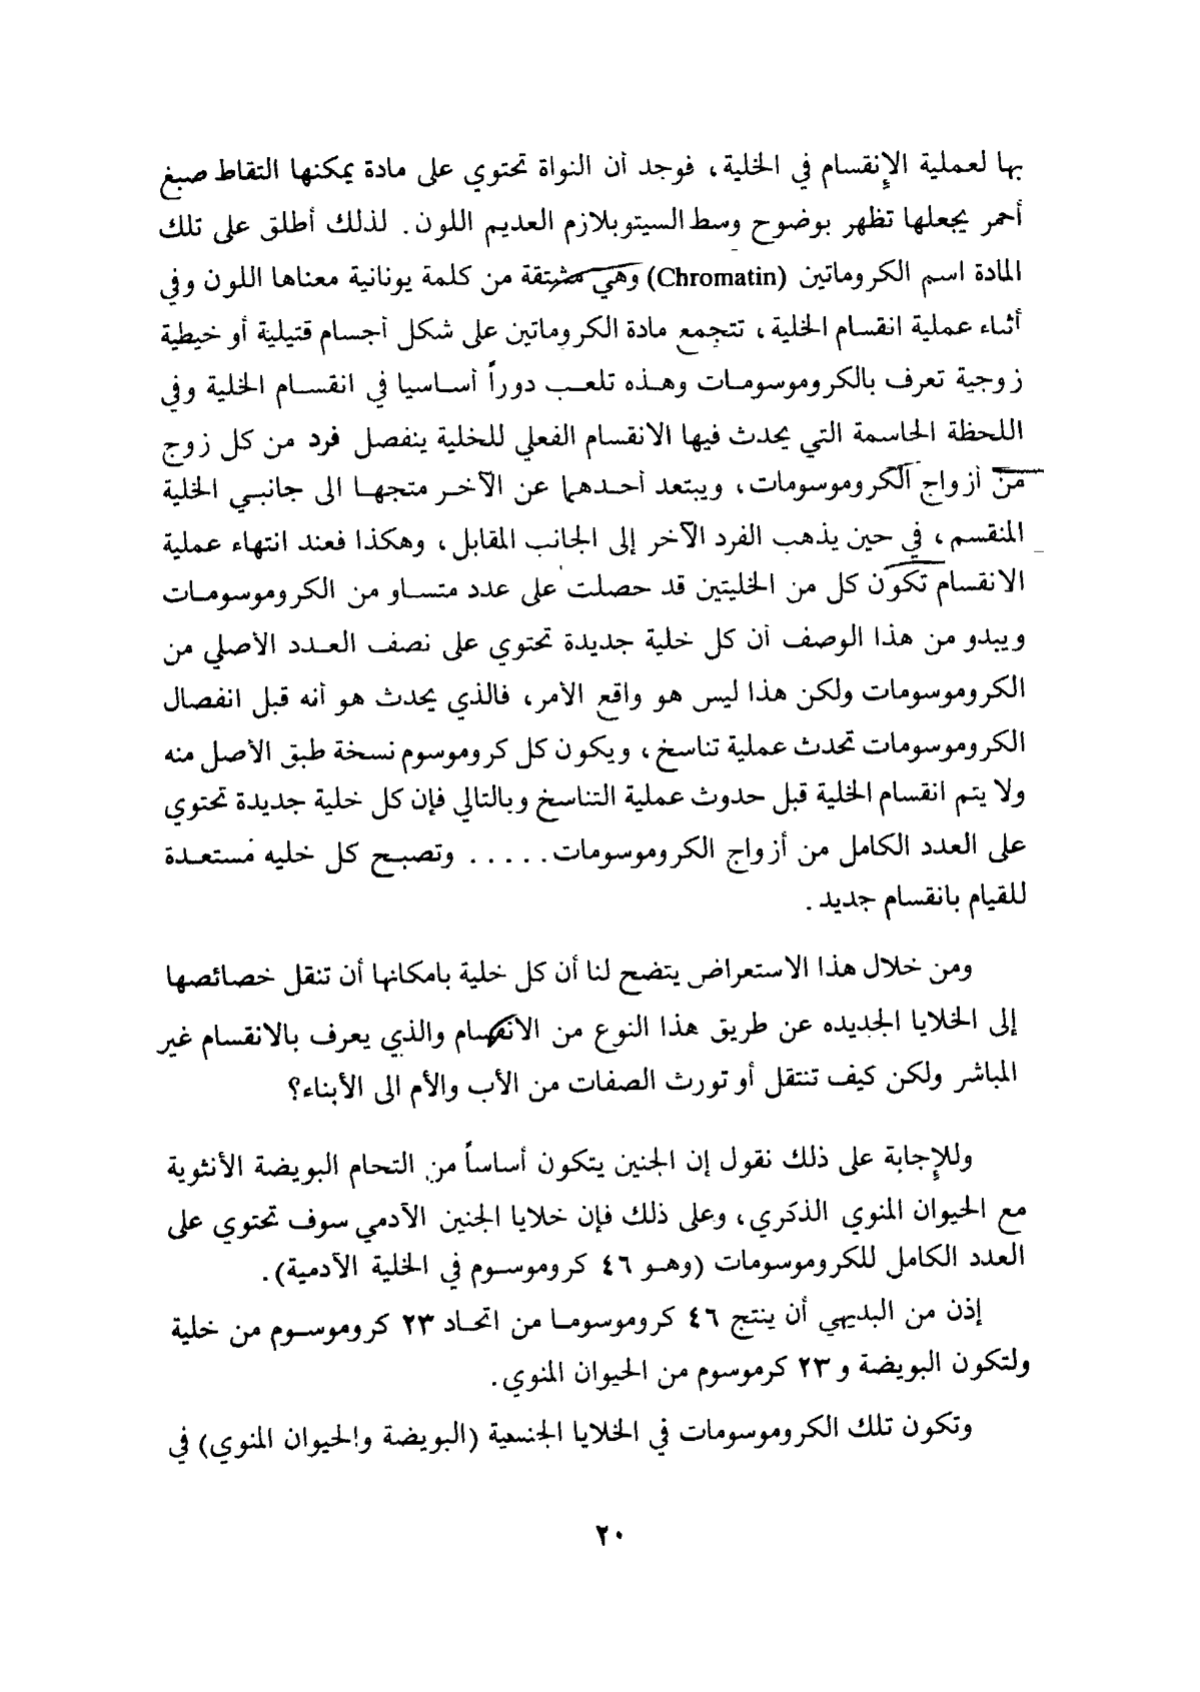 بها لعملية الإنقسام في الخلية، فوجد أن النواة تحتوي على مادة يمكنها التقاط صبغ
أحمر يجعلها تظهر بوضوح وسط السيتوبلازم العديم اللون. لذلك أطلق على تلك
المادة اسم الكروماتين (Chromatin) وهي مشتقة من كلمة يونانية معناها اللون وفي
أثناء عملية انقسام الخلية، تتجمع مادة الكروماتين على شكل أجسام قتيلية أو خيطية
زوجية تعرف بالكروموسومات وهذه تلعب دوراً أساسيا في انقسام الخلية وفي
اللحظة الحاسمة التي يحدث فيها الانقسام الفعلي للخلية ينفصل فرد من كل زوج
من أزواج الكروموسومات، ويبتعد أحدهما عن الآخر متجها الى جانبي الخلية
المنقسم، في حين يذهب الفرد الآخر إلى الجانب المقابل، وهكذا فعند انتهاء عملية
الانقسام تكون كل من الخليتين قد حصلت على عدد متساو من الكروموسومات
ويبدو من هذا الوصف أن كل خلية جديدة تحتوي على نصف العدد الأصلي من
الكروموسومات ولكن هذا ليس هو واقع الأمر، فالذي يحدث هو أنه قبل انفصال
الكروموسومات تحدث عملية تناسخ، ويكون كل كروموسوم نسخة طبق الأصل منه
ولا يتم انقسام الخلية قبل حدوث عملية التناسخ وبالتالي فإن كل خلية جديدة تحتوي
على العدد الكامل من أزواج الكروموسومات..... وتصبح كل خليه مستعدة
للقيام بانقسام جديد.
ومن خلال هذا الاستعراض يتضح لنا أن كل خلية بامكانها أن تنقل خصائصها
إلى الخلايا الجديده عن طريق هذا النوع من الانقسام والذي يعرف بالانقسام غير
المباشر ولكن كيف تنتقل أو تورث الصفات من الأب والأم الى الأبناء؟
وللإجابة على ذلك نقول إن الجنين يتكون أساساً من التحام البويضة الأنثوية
مع الحيوان المنوي الذكري، وعلى ذلك فإن خلايا الجنين الآدمي سوف تحتوي على
العدد الكامل للكروموسومات (وهو ٤٦ كروموسوم في الخلية الآدمية).
إذن من البديهي أن ينتج ٤٦ كروموسوما من اتحاد ٢٣ كروموسوم من خلية
ولتكون البويضة و ٢٣ كرموسوم من الحيوان المنوي.
وتكون تلك الكروموسومات في الخلايا الجنسية (البويضة والحيوان المنوي) في
٢٠